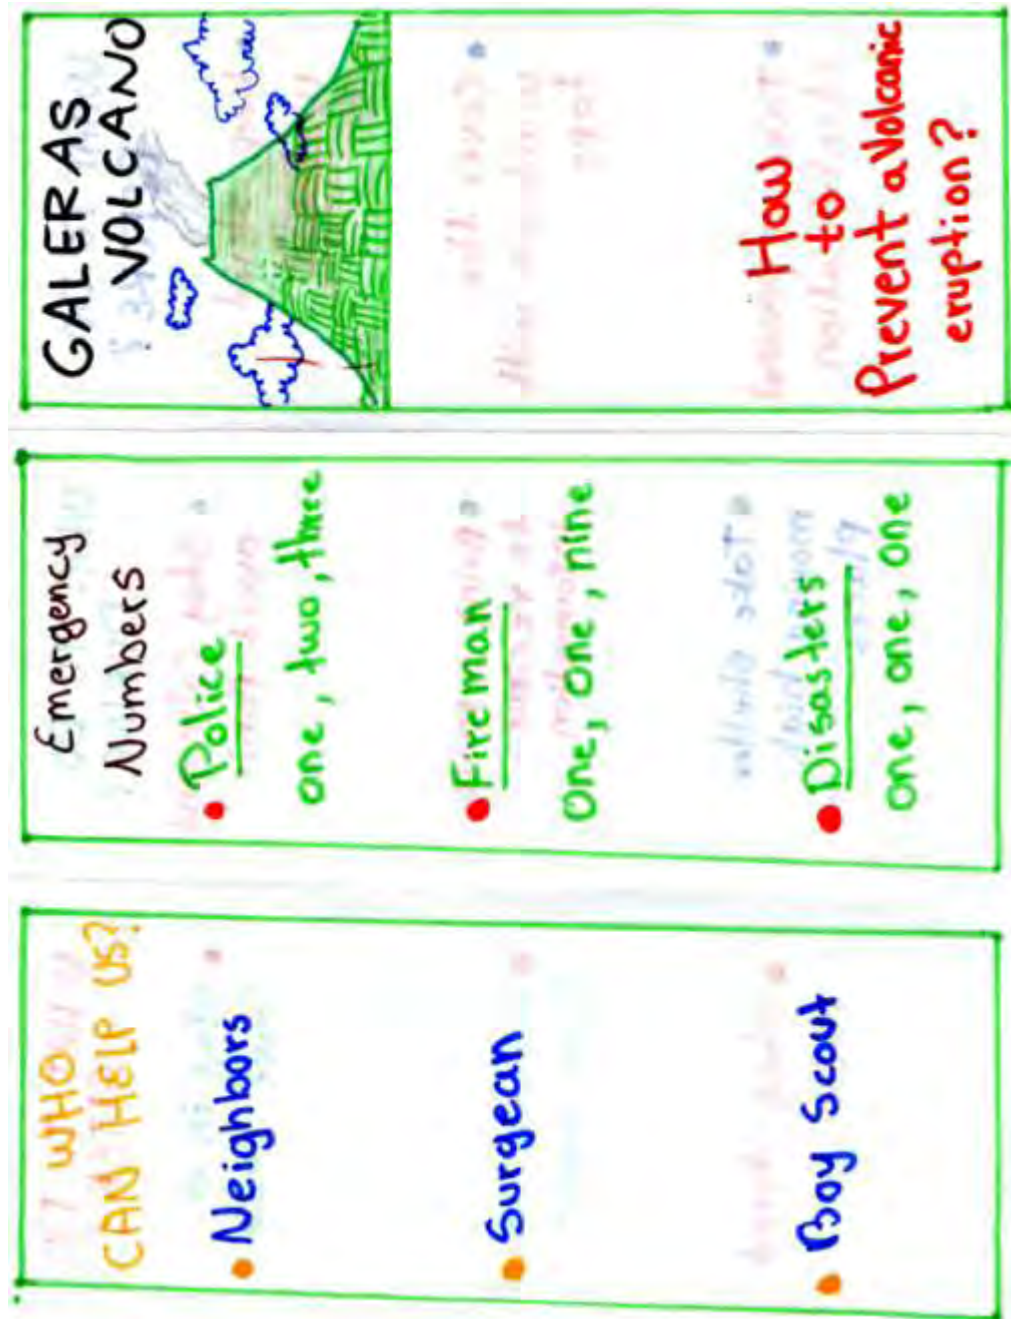 WHO
CAN HELP US?
• Neighbors
• Surgean
• Boy Scout
Emergency
Numbers
• Police
one, two, three
• Fireman
one, one, nine
• Disasters
one, one, one
GALERAS
VOLCANO
How
to
Prevent a Volcanic
eruption?